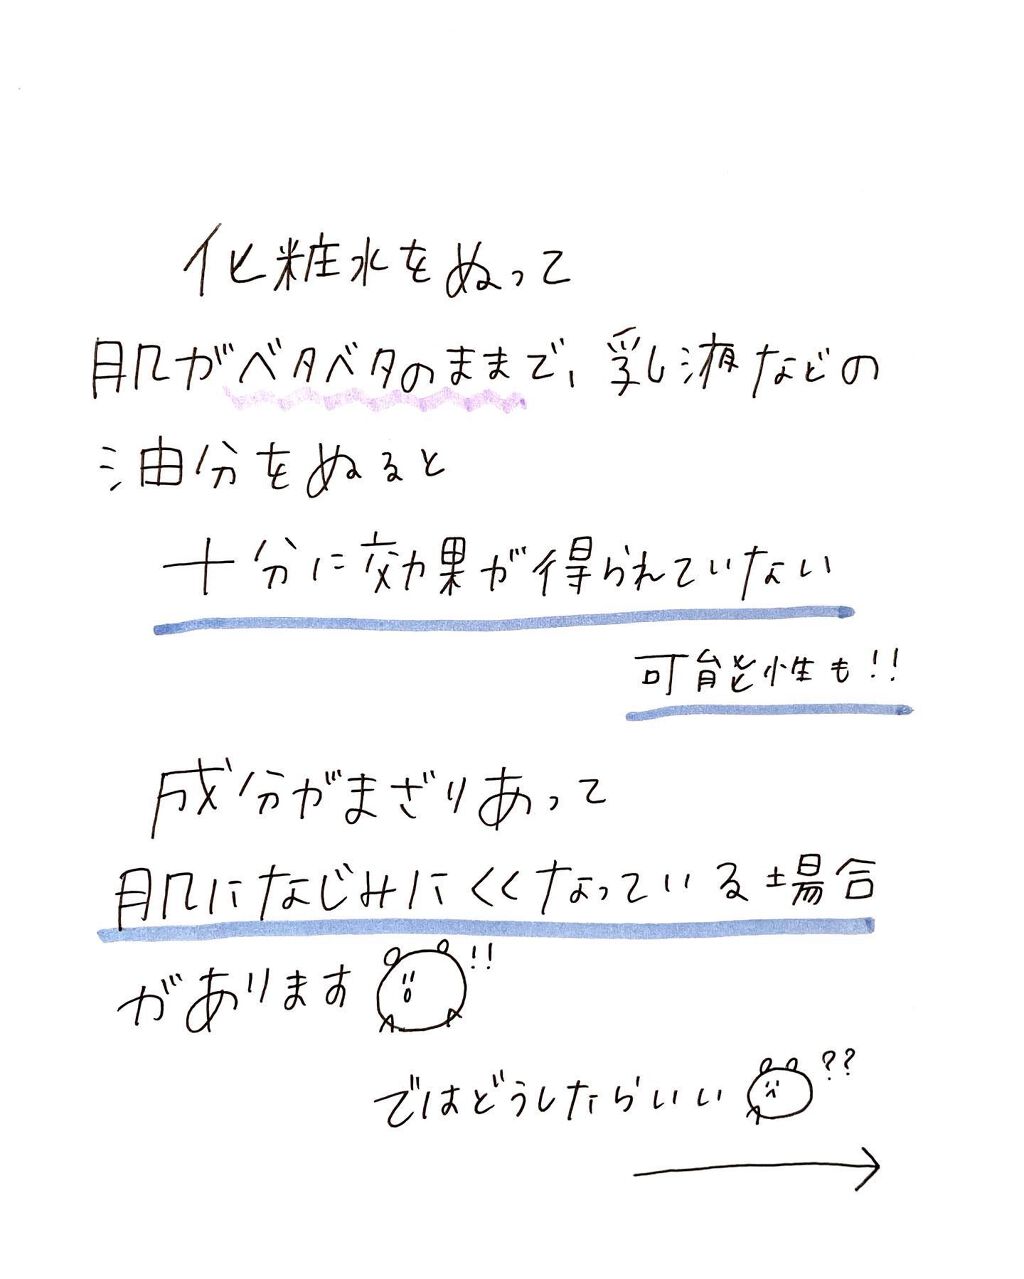 化粧水をぬって
肌がベタベタのままで、乳液などの
油分をぬると
十分に効果が得られていない
可能性も!!
成分がまざりあって
肌になじみにくくなっている場合
があります!!
ではどうしたらいい??